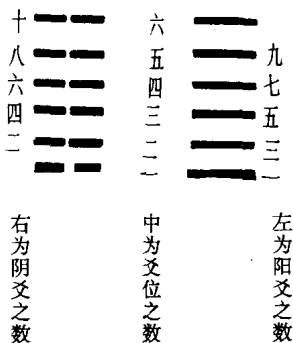 十八六四二
六五四三二一
九七五三一
右为阴爻之数
中为爻位之数
左为阳爻之数